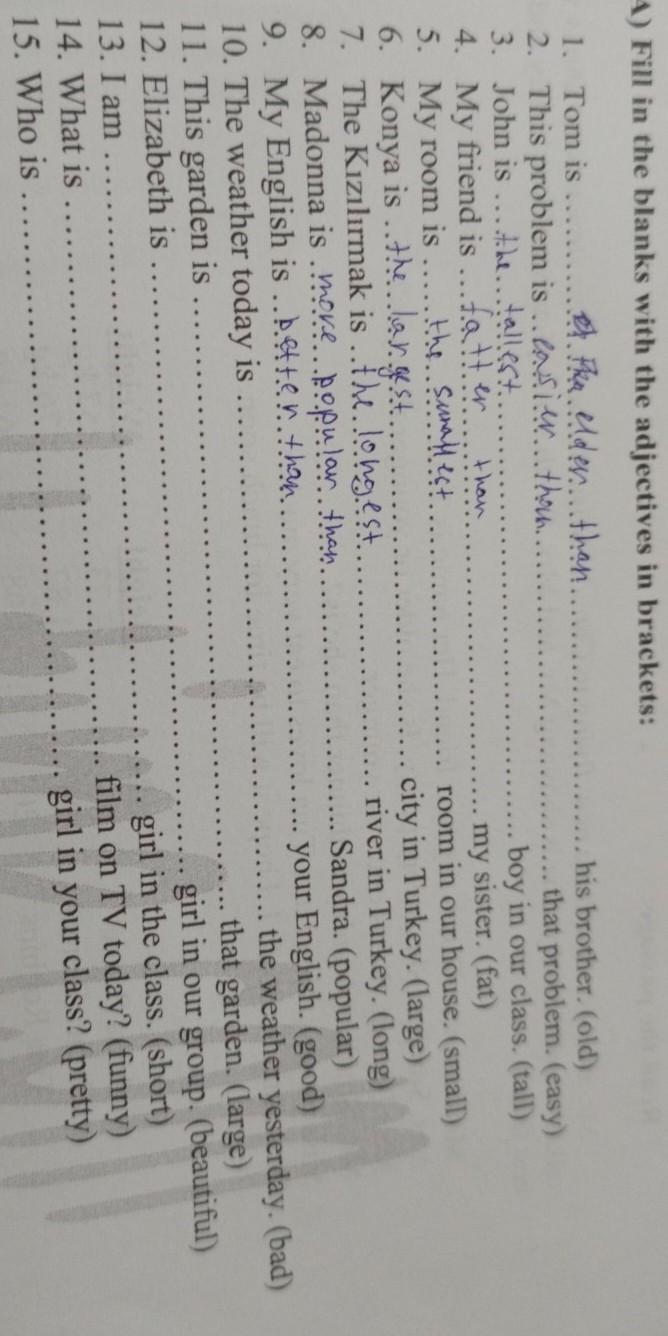 A) Fill in the blanks with the adjectives in brackets:
1. Tom is .......... elder than .......... his brother. (old)
2. This problem is .. easier than .......... that problem. (easy)
3. John is .... the tallest .......... boy in our class. (tall)
4. My friend is ... fatter than .......... my sister. (fat)
5. My room is ...... the smallest .......... room in our house. (small)
6. Konya is .. the largest .......... city in Turkey. (large)
7. The Kızılırmak is .. the longest .......... river in Turkey. (long)
8. Madonna is . more popular than .......... Sandra. (popular)
9. My English is .. better than .......... your English. (good)
10. The weather today is .......... the weather yesterday. (bad)
11. This garden is .......... that garden. (large)
12. Elizabeth is .......... girl in our group. (beautiful)
13. I am .......... girl in the class. (short)
14. What is .......... film on TV today? (funny)
15. Who is .......... girl in your class? (pretty)